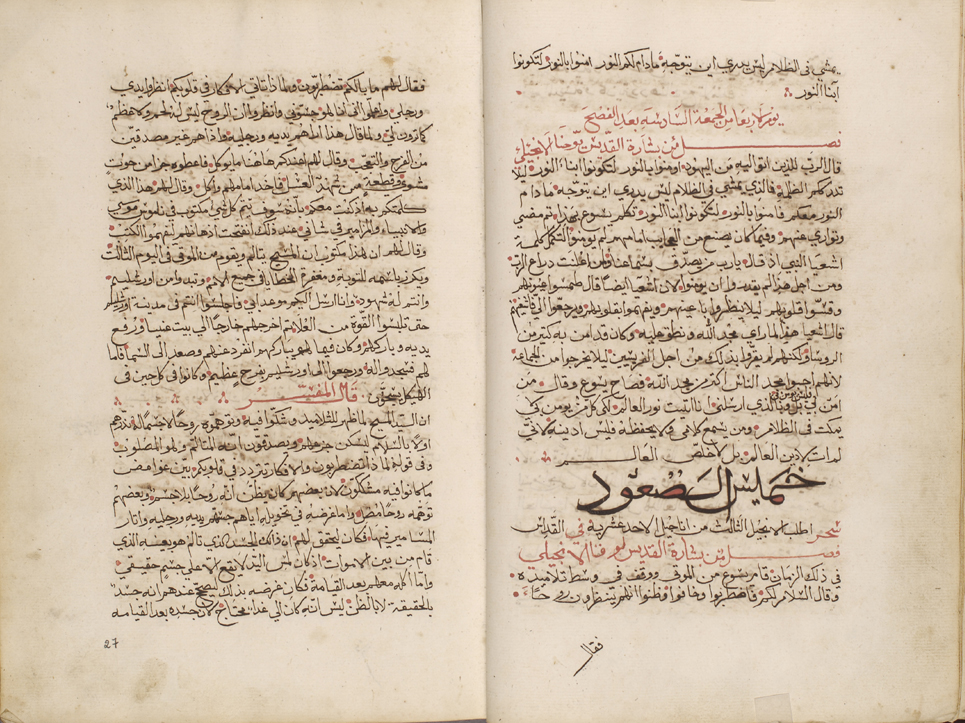 يمشي في الظلام ليس يدري اين يتوجه مادام لكم النور امنوا بالنور لتكونوا
ابنا النور
يوم الاربعا من الجمعة السادسه بعد الفصح
فصل من بشارة القديس يوحنا الانجيلي
قال الرب للذين اتوا اليه من اليهود امنوا بالنور لتكونوا ابناء النور ليلا
تدرككم الظلمة فالذي يمشي في الظلام ليس يدري اين يتوجه ما دام
النور معكم فامنوا بالنور لتكونوا ابنا النور تكلم يسوع بهذا ثم مضى
وتوارى عنهم وفيما كان يصنع من العجايب امامهم لم يومنوا لتكمل كلمة
اشعيا النبي اذ قال يارب من يصدق بسماعنا ولمن اعلنت دراع الرب
ومن اجل هذا لم يقدروا ان يومنوا لان اشعيا ايضا قال طمسوا عيونهم
وقسوا قلوبهم ليلا ينظروا باعينهم ويفهموا بقلوبهم ويرجعوا الي فاشفيهم
قال اشعيا هذا لما راى مجد الله ونطق عليه وكان قد امن به كتير من
الروسا ولكنهم لم يقروا بذلك من اجل الفريسين ليلا يخرجوا من الجماعة
لانهم احبوا مجد الناس اكثر من مجد الله فصاح يسوع وقال من
امن بي فليس يومن بي بل بالذي ارسلني انا اتيت نور العالم لكي كل من يومن بي لا
يمكت في الظلام ومن يسمع كلامي ولا يحفظه فليس ادينه لانني
لم ات لادين العالم بل لاخلص العالم
خميس الصعود
سحر اطلب الانجيل الثالث من اناجيل الاحد عشرية في القداس
فصل من بشارة القديس لوقا الانجيلي
في ذلك الزمان قام يسوع من الموتى ووقف في وسط تلاميذه
وقال السلام لكم فاضطربوا وخافوا وظنوا انهم ينظرون روحا
فقال
فقال لهم ما بالكم تضطربون ولماذا تاتي الافكار في قلوبكم انظروا يدي
ورجلي واعلموا اني انا هو جسوني وانظروا ان الروح ليس له لحم ولا عظم
كما ترون لي ولما قال هذا اراهم يديه ورجليه واذ هم غير مصدقين
من الفرح والتعجب وقال لهم اعندكم هاهنا ما يوكل فاعطوه جزا من حوت
مشوي وقطعة من شهد العسل فاخذ امامهم واكل وقال لهم هذا الذي
كلمتكم به اذ كنت معكم بانه سوف يتم كل شي مكتوب في ناموس موسى
والانبياء والمزامير في شاني عند ذلك انفتحت اذهانهم لفهموا الكتب
وقال لهم ان هكذا مكتوب ان المسيح يتالم ويقوم من الموتى في اليوم الثالث
ويكرز باسمه التوبة ومغفرة الخطايا في جميع الامم وتبدوا من اورشليم
وانتم له شهود وانا ارسل اليكم موعد ابي فاجلسوا انتم في مدينة اورشليم
حتى تلبسوا القوة من العلا ثم اخرجهم خارجا الى بيت عنيا ورفع
يديه وباركهم وكان فيما هو يباركهم انفرد عنهم وصعد الى السما فاما
هم فسجدوا له ورجعوا الى اورشليم بفرح عظيم وكانوا في كل حين في
الهيكل يسبحون قال المفسر
ان السيد المسيح لما ظهر للتلاميد وشكوا فيه وتوهموه روحا لا جسما انذرهم
اولا بالسلام ليسكن جزعهم ويصدقون انه المتالم وهو المصلوب
وفي قوله لماذا تضطربون والافكار تتردد في قلوبكم بين غوامض
ما كانوا فيه مشككون لان بعضهم كان يظن انه روحا بلا جسم وبعضهم
توهمه روحا مضل واما غرضه في تخويله اياهم جسهم يديه ورجليه واثار
المسامير فيهما فكان ليحقق لهم ان ذلك الجسد الذي تالم هو بعينه الذي
قام من بين الاموات اذ كان لمس اليد لا يقع الا على جسم حقيقي
واما اكله معهم بعد القيامة فكان غرضه بذلك ليصح عندهم انه جسد
بالحقيقة لا بالظن ليس انه كان الى غدا محتاج لان جسده بعد القيامه
27